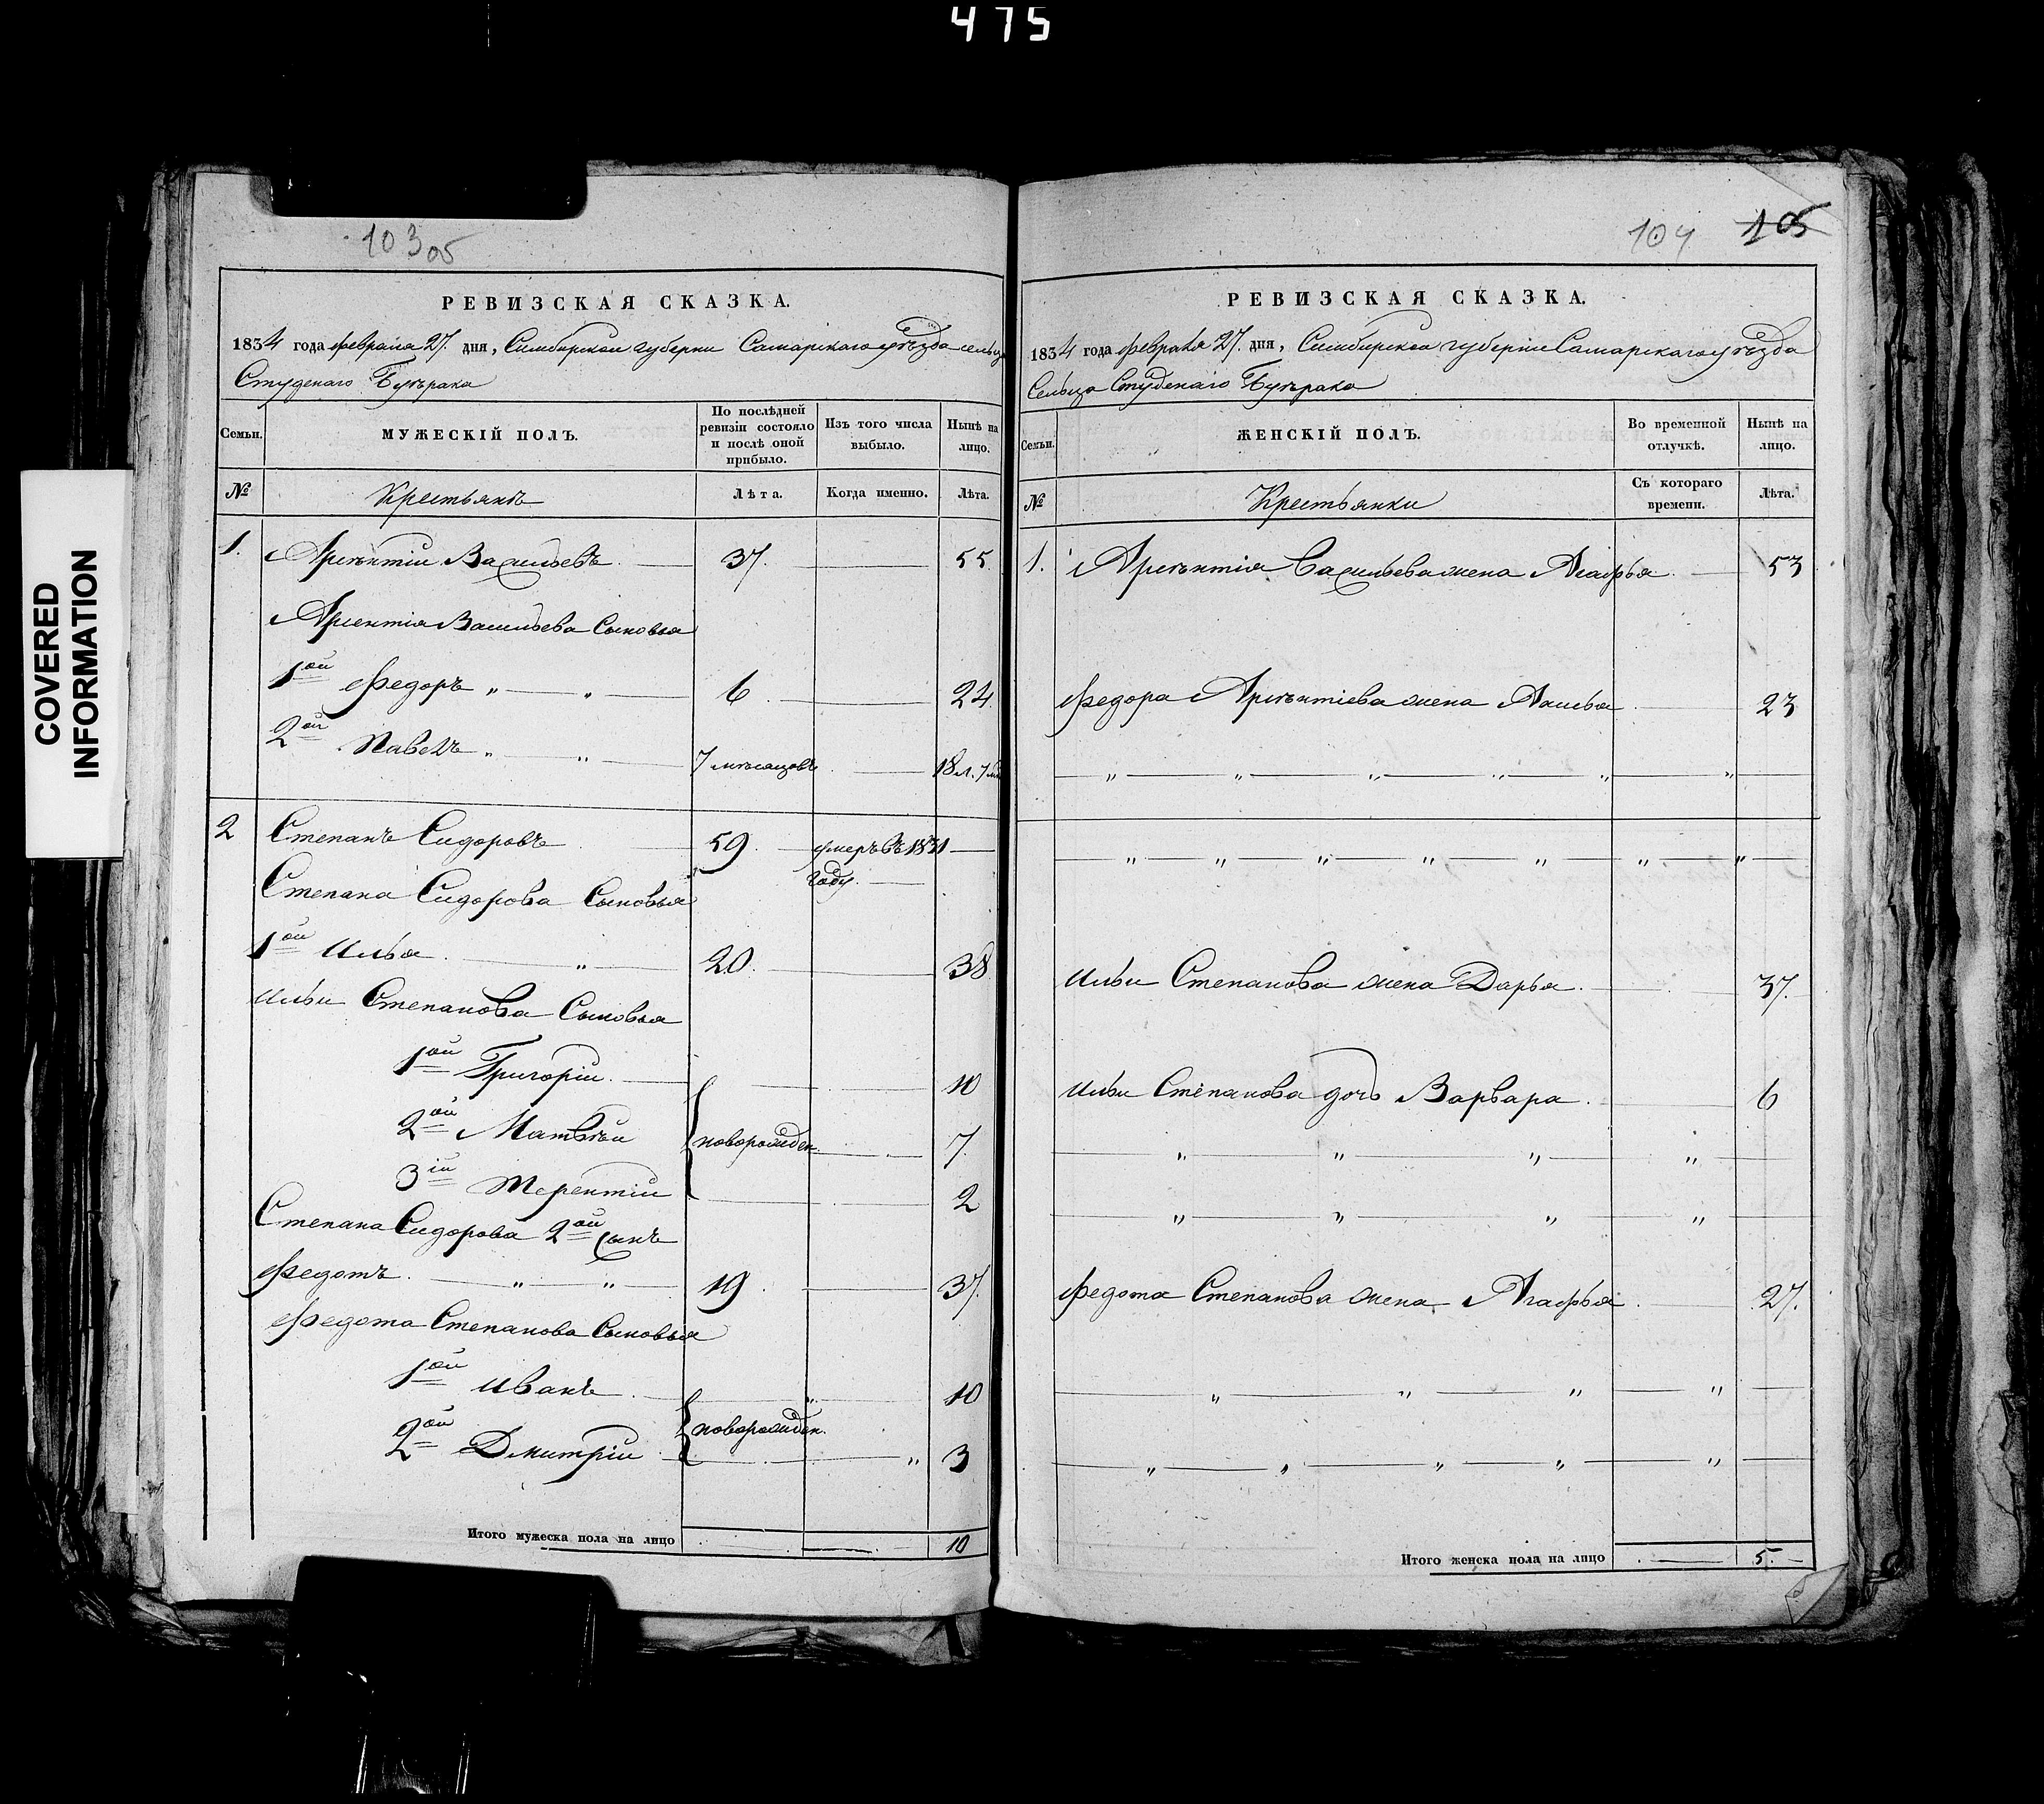 475
COVERED
INFORMATION
103 05
РЕВИЗСКАЯ СКАЗКА.
1834 года февраля 27. дня, Симбирской губерни Самарскаго уѣзда сельца
Студенаго Буърака
Семьи.
МУЖЕСКІЙ ПОЛЪ.
По послѣдней
ревизіи состояло
и послѣ оной
прибыло.
Изъ того числа
выбыло.
Нынѣ на
лицо.
№
Крестьянъ
Лѣта.
Когда именно.
Лѣта.
1. Арсѣнтіи Васильевъ 37. 55
Арсентія Васильева Сыновья
1ой Федоръ 6 24
2ой Павелъ 7 мѣсяцовъ 18 л. 7
2 Степанъ Сидоровъ 59 умеръ въ 1831
году.
Степана Сидорова Сыновья
1ой Илья 20. 38
Ильи Степанова Сыновья
1ой Григоріи 10
2ой Матвѣй новорожден. 7
3ій Терентіи 2
Степана Сидорова 2ой сынъ
Федотъ 19 37.
Федота Степанова Сыновья
1ой Иванъ 10
новорожден.
2ой Дмитріи 3
Итого мужеска пола на лицо 10
104 105
РЕВИЗСКАЯ СКАЗКА.
1834 года февраля 27. дня, Симбирской губерніи Самарскаго уѣзда
Сельца Студенаго Буърака
Семьи.
ЖЕНСКІЙ ПОЛЪ.
Во временной
отлучкѣ.
Нынѣ на
лицо.
№
Крестьянки
Съ котораго
времени.
Лѣта.
1. Арсѣнтія Васильева жена Агафья 53
Федора Арсѣнтіева жена 23
Ильи Степанова жена Дарья 37.
Ильи Степанова дочь Варвара 6
Федота Степанова жена Агафья 27.
Итого женска пола на лицо 5.